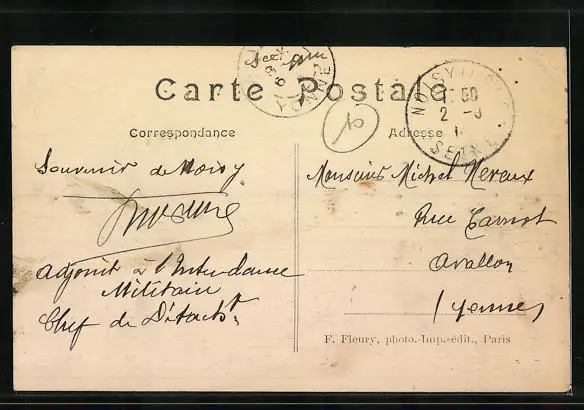 Carte Postale
YONNE
NOISY-LE-SEC
2 -
SEINE
Correspondance
Adresse
Souvenir de Noisy
Adjoint à l'Intendance
Militaire
Chef de Détacht
Monsieur Michel Neraux
Rue Carnot
Avallon
Yonne
F. Fleury, photo.-Imp.-édit., Paris